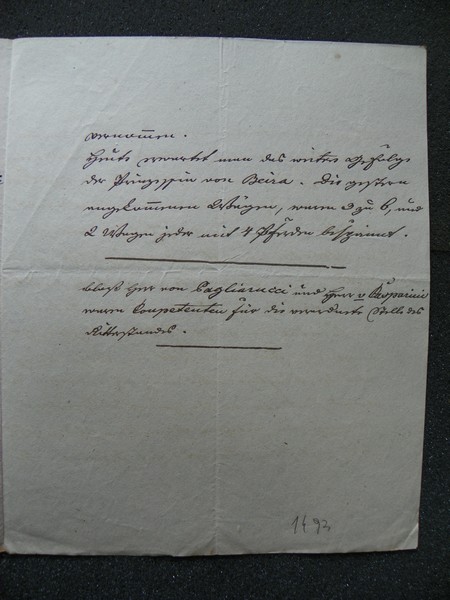 vernommen.
Heute erwartet man das weitere Gefolge
der Prinzessin von Beira. Die gestern
angekommenen Wägen, waren 3 zu 6, und
2 Wagen jeder mit 4 Pferden bespannt.
bloß Herr von Pagliarucci und Herr v Gasparini
waren Competenten für die verordnete Stelle des
Ritterstandes.
14 92